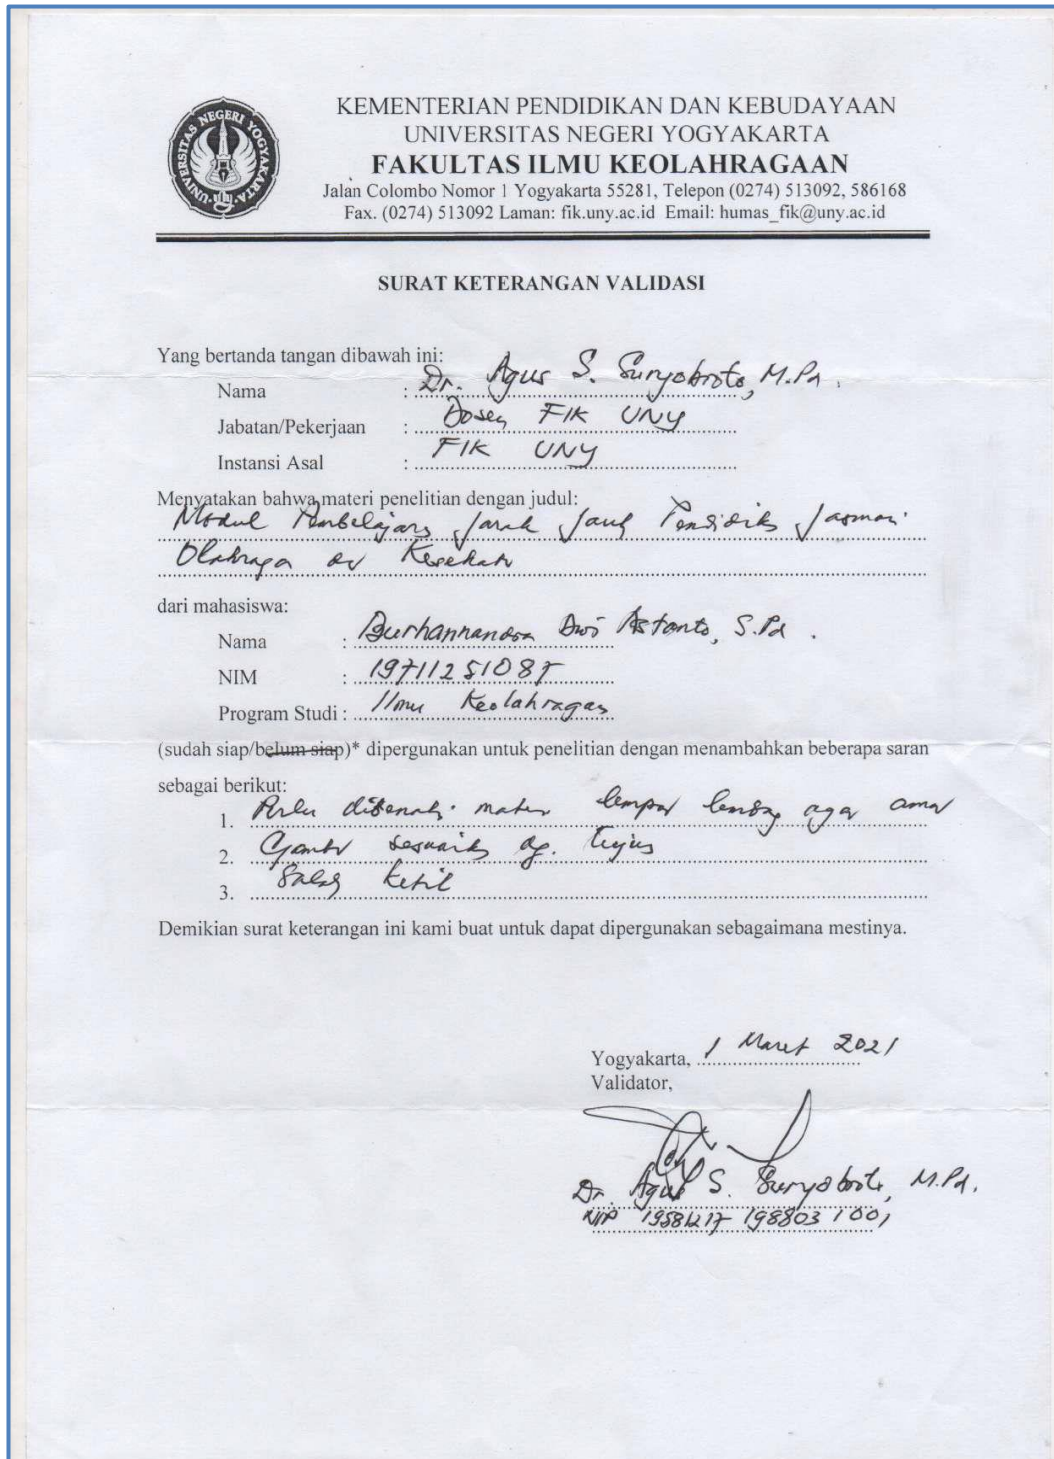 UNIVERSITAS NEGERI YOGYAKARTA
KEMENTERIAN PENDIDIKAN DAN KEBUDAYAAN
UNIVERSITAS NEGERI YOGYAKARTA
FAKULTAS ILMU KEOLAHRAGAAN
Jalan Colombo Nomor 1 Yogyakarta 55281, Telepon (0274) 513092, 586168
Fax. (0274) 513092 Laman: fik.uny.ac.id Email: humas_fik@uny.ac.id
SURAT KETERANGAN VALIDASI
Yang bertanda tangan dibawah ini:
Nama : Dr. Agus S. Suryobroto, M.Pd.
Jabatan/Pekerjaan : Dosen FIK UNY
Instansi Asal : FIK UNY
Menyatakan bahwa materi penelitian dengan judul:
Modul Pembelajaran Jarak Jauh Pendidikan Jasmani
Olahraga Kesehatan
dari mahasiswa:
Nama : Dwi Astanto, S.Pd.
NIM :
Program Studi : Ilmu Keolahragaan
(sudah siap/belum siap)* dipergunakan untuk penelitian dengan menambahkan beberapa saran
sebagai berikut:
1. Perlu materi lempar lembing agar aman
2. Gambar sesuaikan dg. tujuan
3. Salah ketik
Demikian surat keterangan ini kami buat untuk dapat dipergunakan sebagaimana mestinya.
Yogyakarta, 1 Maret 2021
Validator,
Dr. Agus S. Suryobroto, M.Pd.
NIP 19581217 198803 1 001